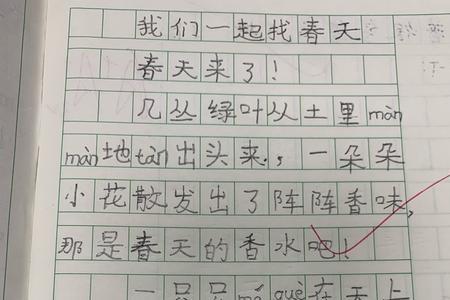 我们一起找春天
春天来了！
几丛绿叶从土里màn
màn地tàn出头来.，一朵朵
小花散发出了阵阵香味，
那是春天的香水吧！
一只只má què在天上